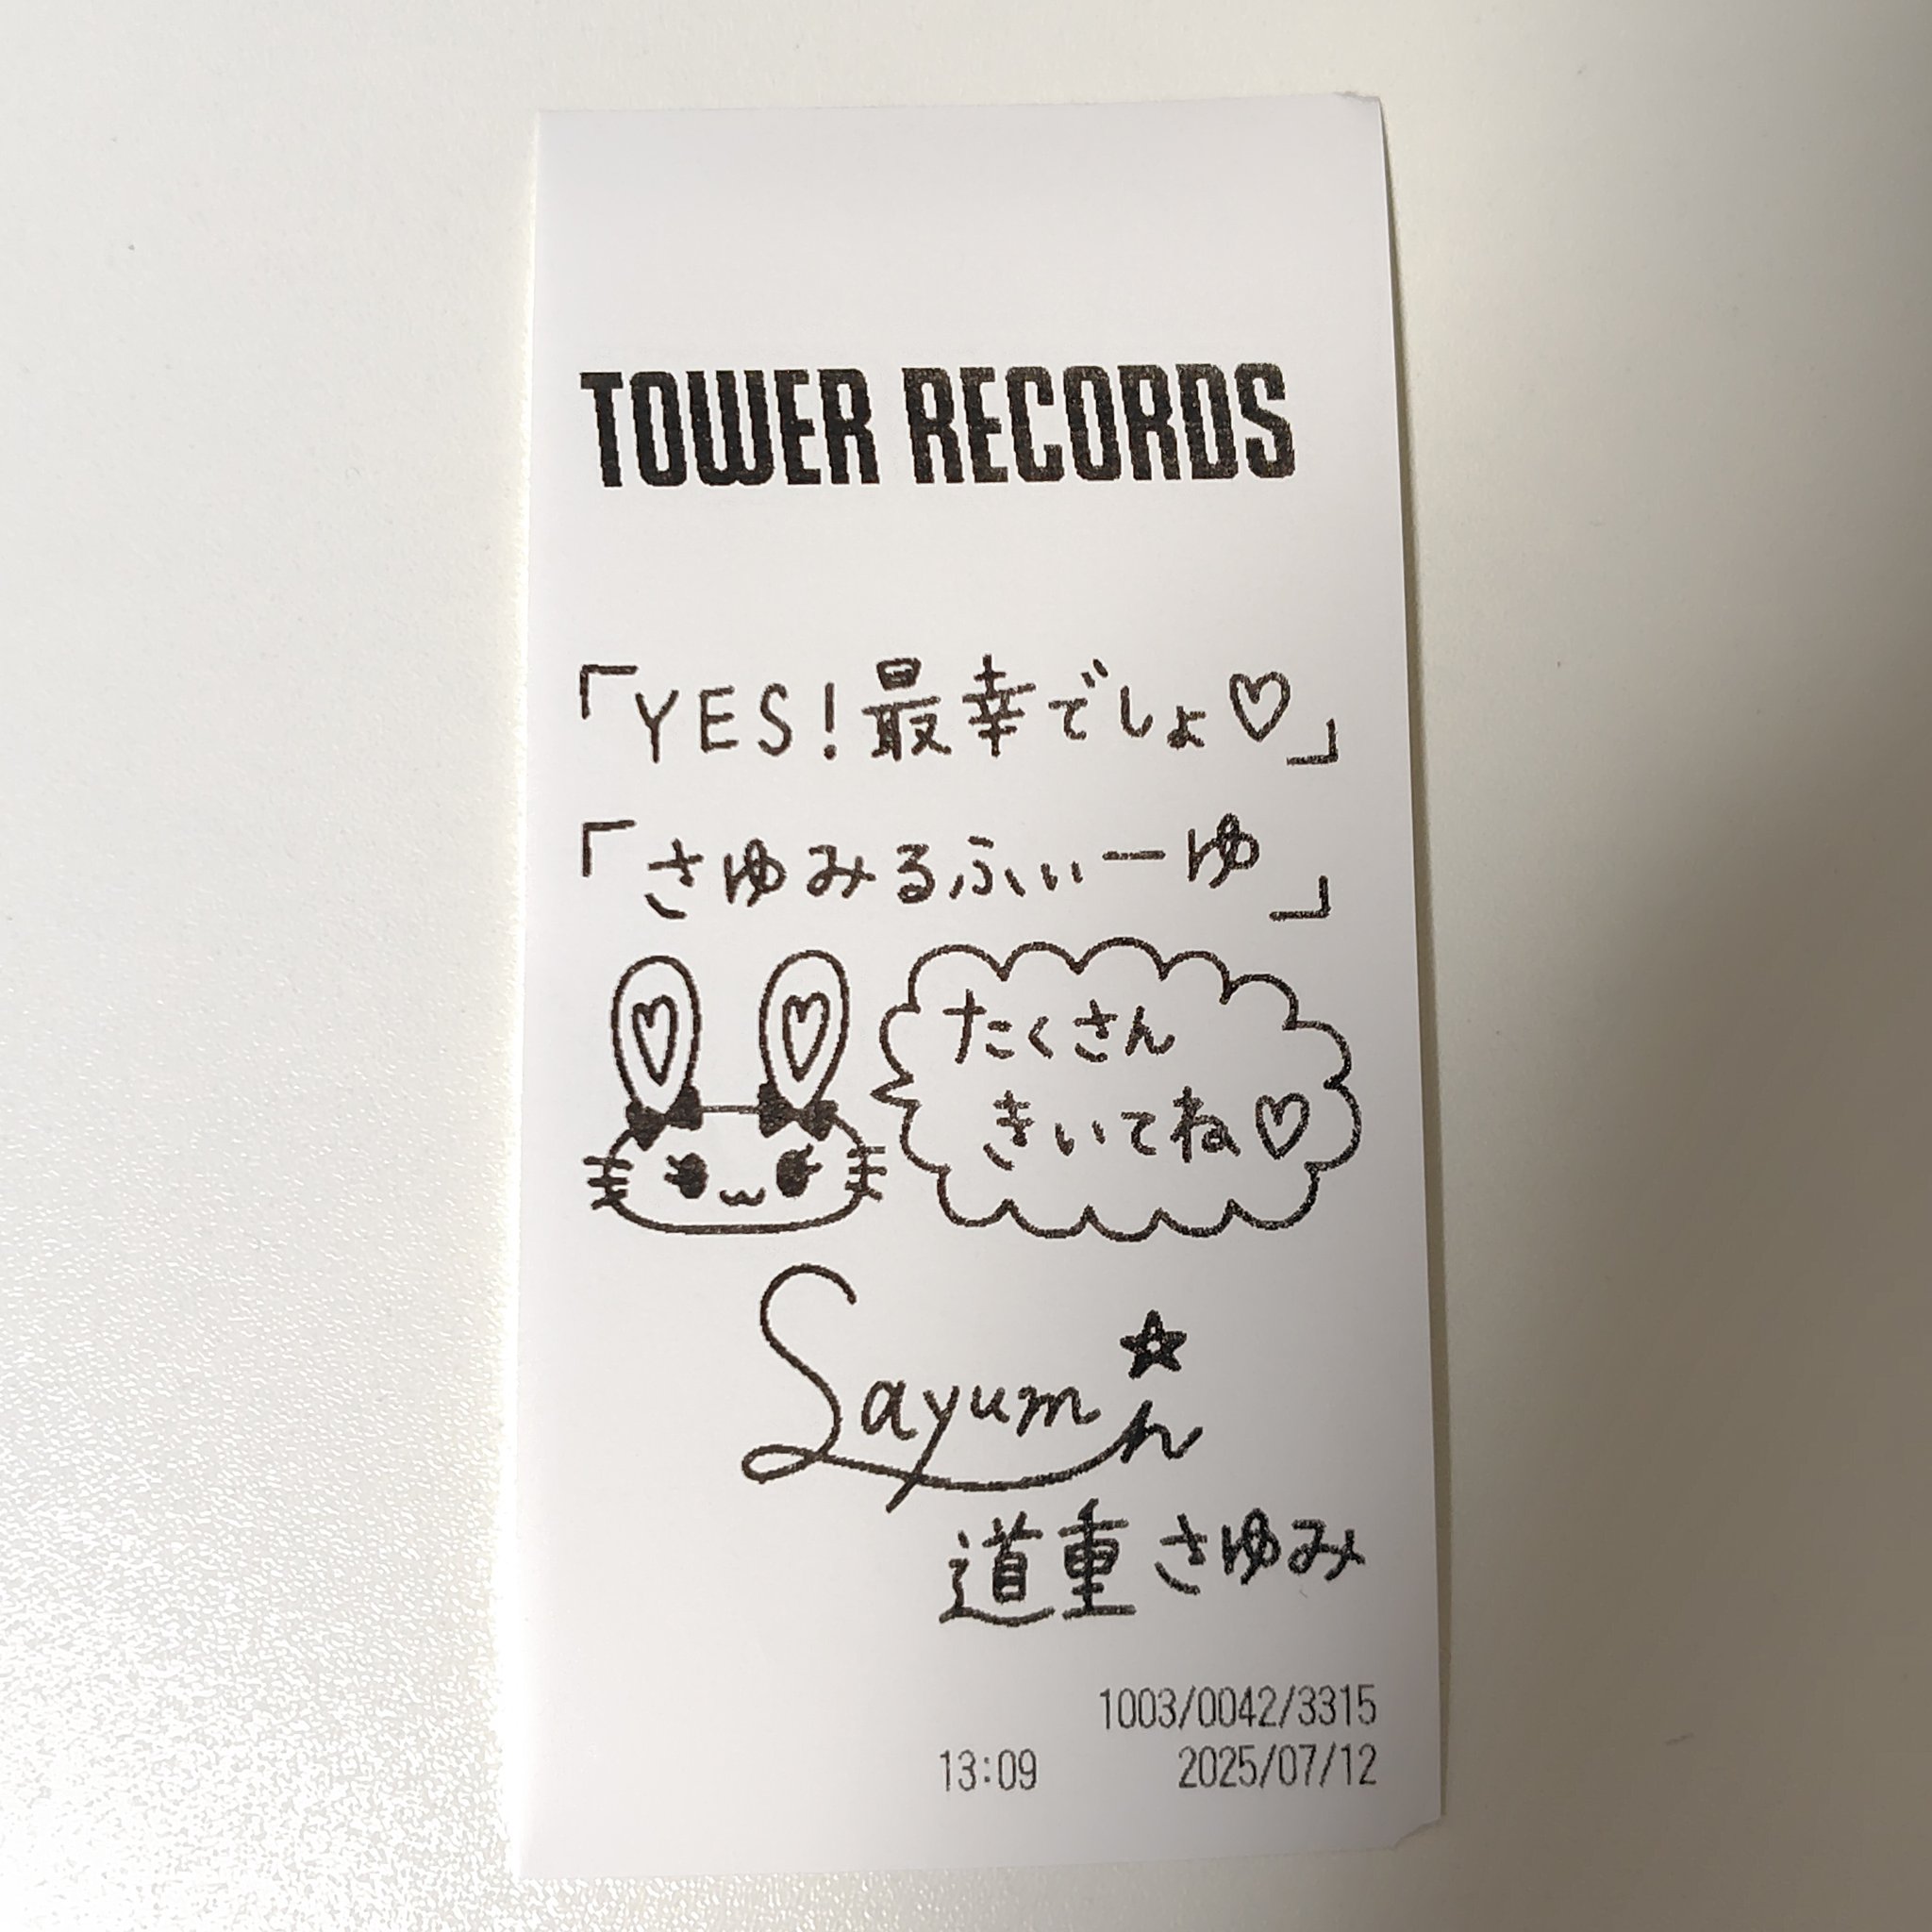 TOWER RECORDS
「YES!最幸でしょ♡」
「さゆみるふぃーゆ」
たくさん
きいてね♡
Sayumin
道重さゆみ
1003/0042/3315
13:09 2025/07/12